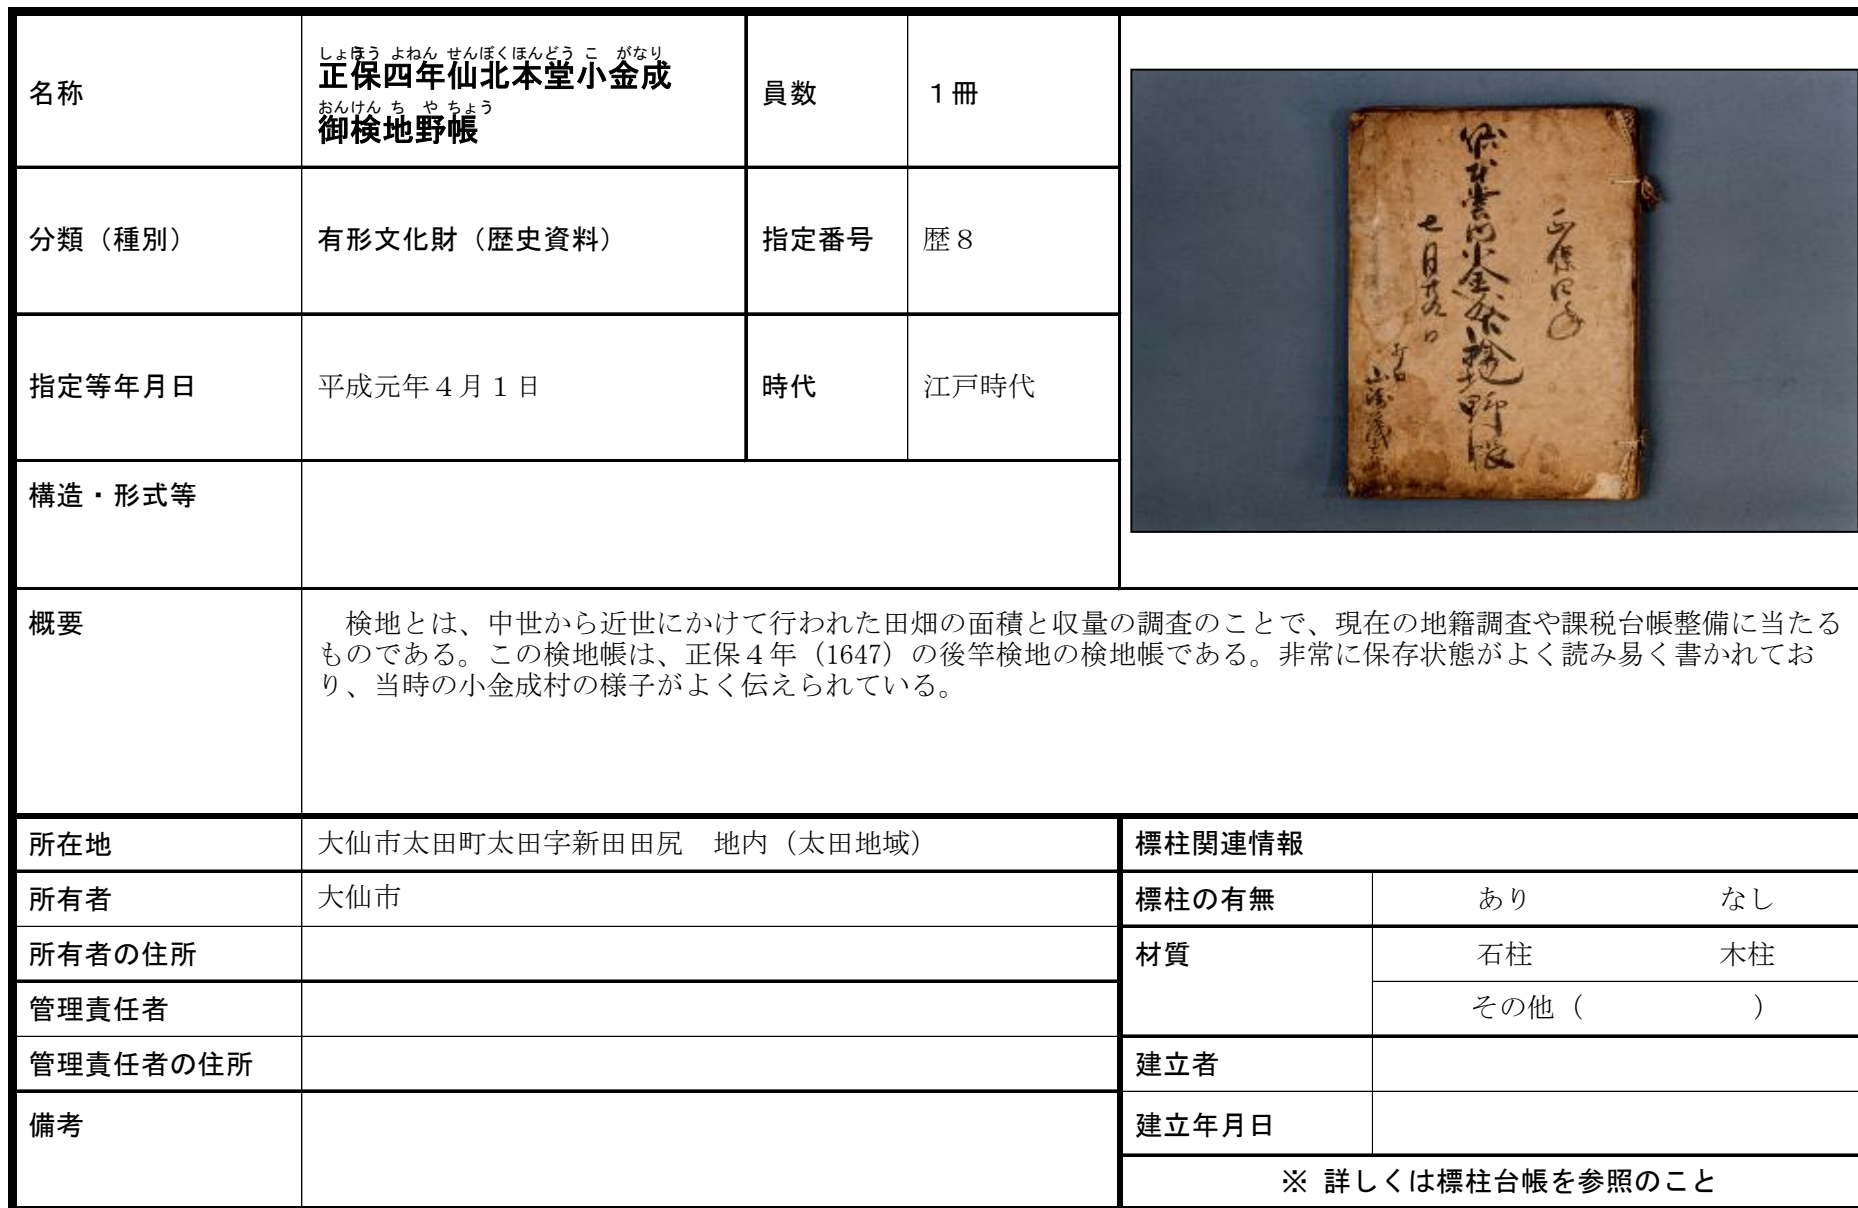 名称
しょほう よねん せんぼくほんどう こ がなり
正保四年仙北本堂小金成
おんけん ち や ちょう
御検地野帳
員数
1冊
分類（種別）
有形文化財（歴史資料）
指定番号
歴８
指定等年月日
平成元年４月１日
時代
江戸時代
正保四年
七月
検地野帳
構造・形式等
概要
検地とは、中世から近世にかけて行われた田畑の面積と収量の調査のことで、現在の地籍調査や課税台帳整備に当たる
ものである。この検地帳は、正保４年（1647）の後竿検地の検地帳である。非常に保存状態がよく読み易く書かれてお
り、当時の小金成村の様子がよく伝えられている。
所在地
大仙市太田町太田字新田田尻　地内（太田地域）
所有者
大仙市
所有者の住所
管理責任者
管理責任者の住所
備考
標柱関連情報
標柱の有無
あり　なし
材質
石柱　木柱
その他（　　　　　）
建立者
建立年月日
※ 詳しくは標柱台帳を参照のこと